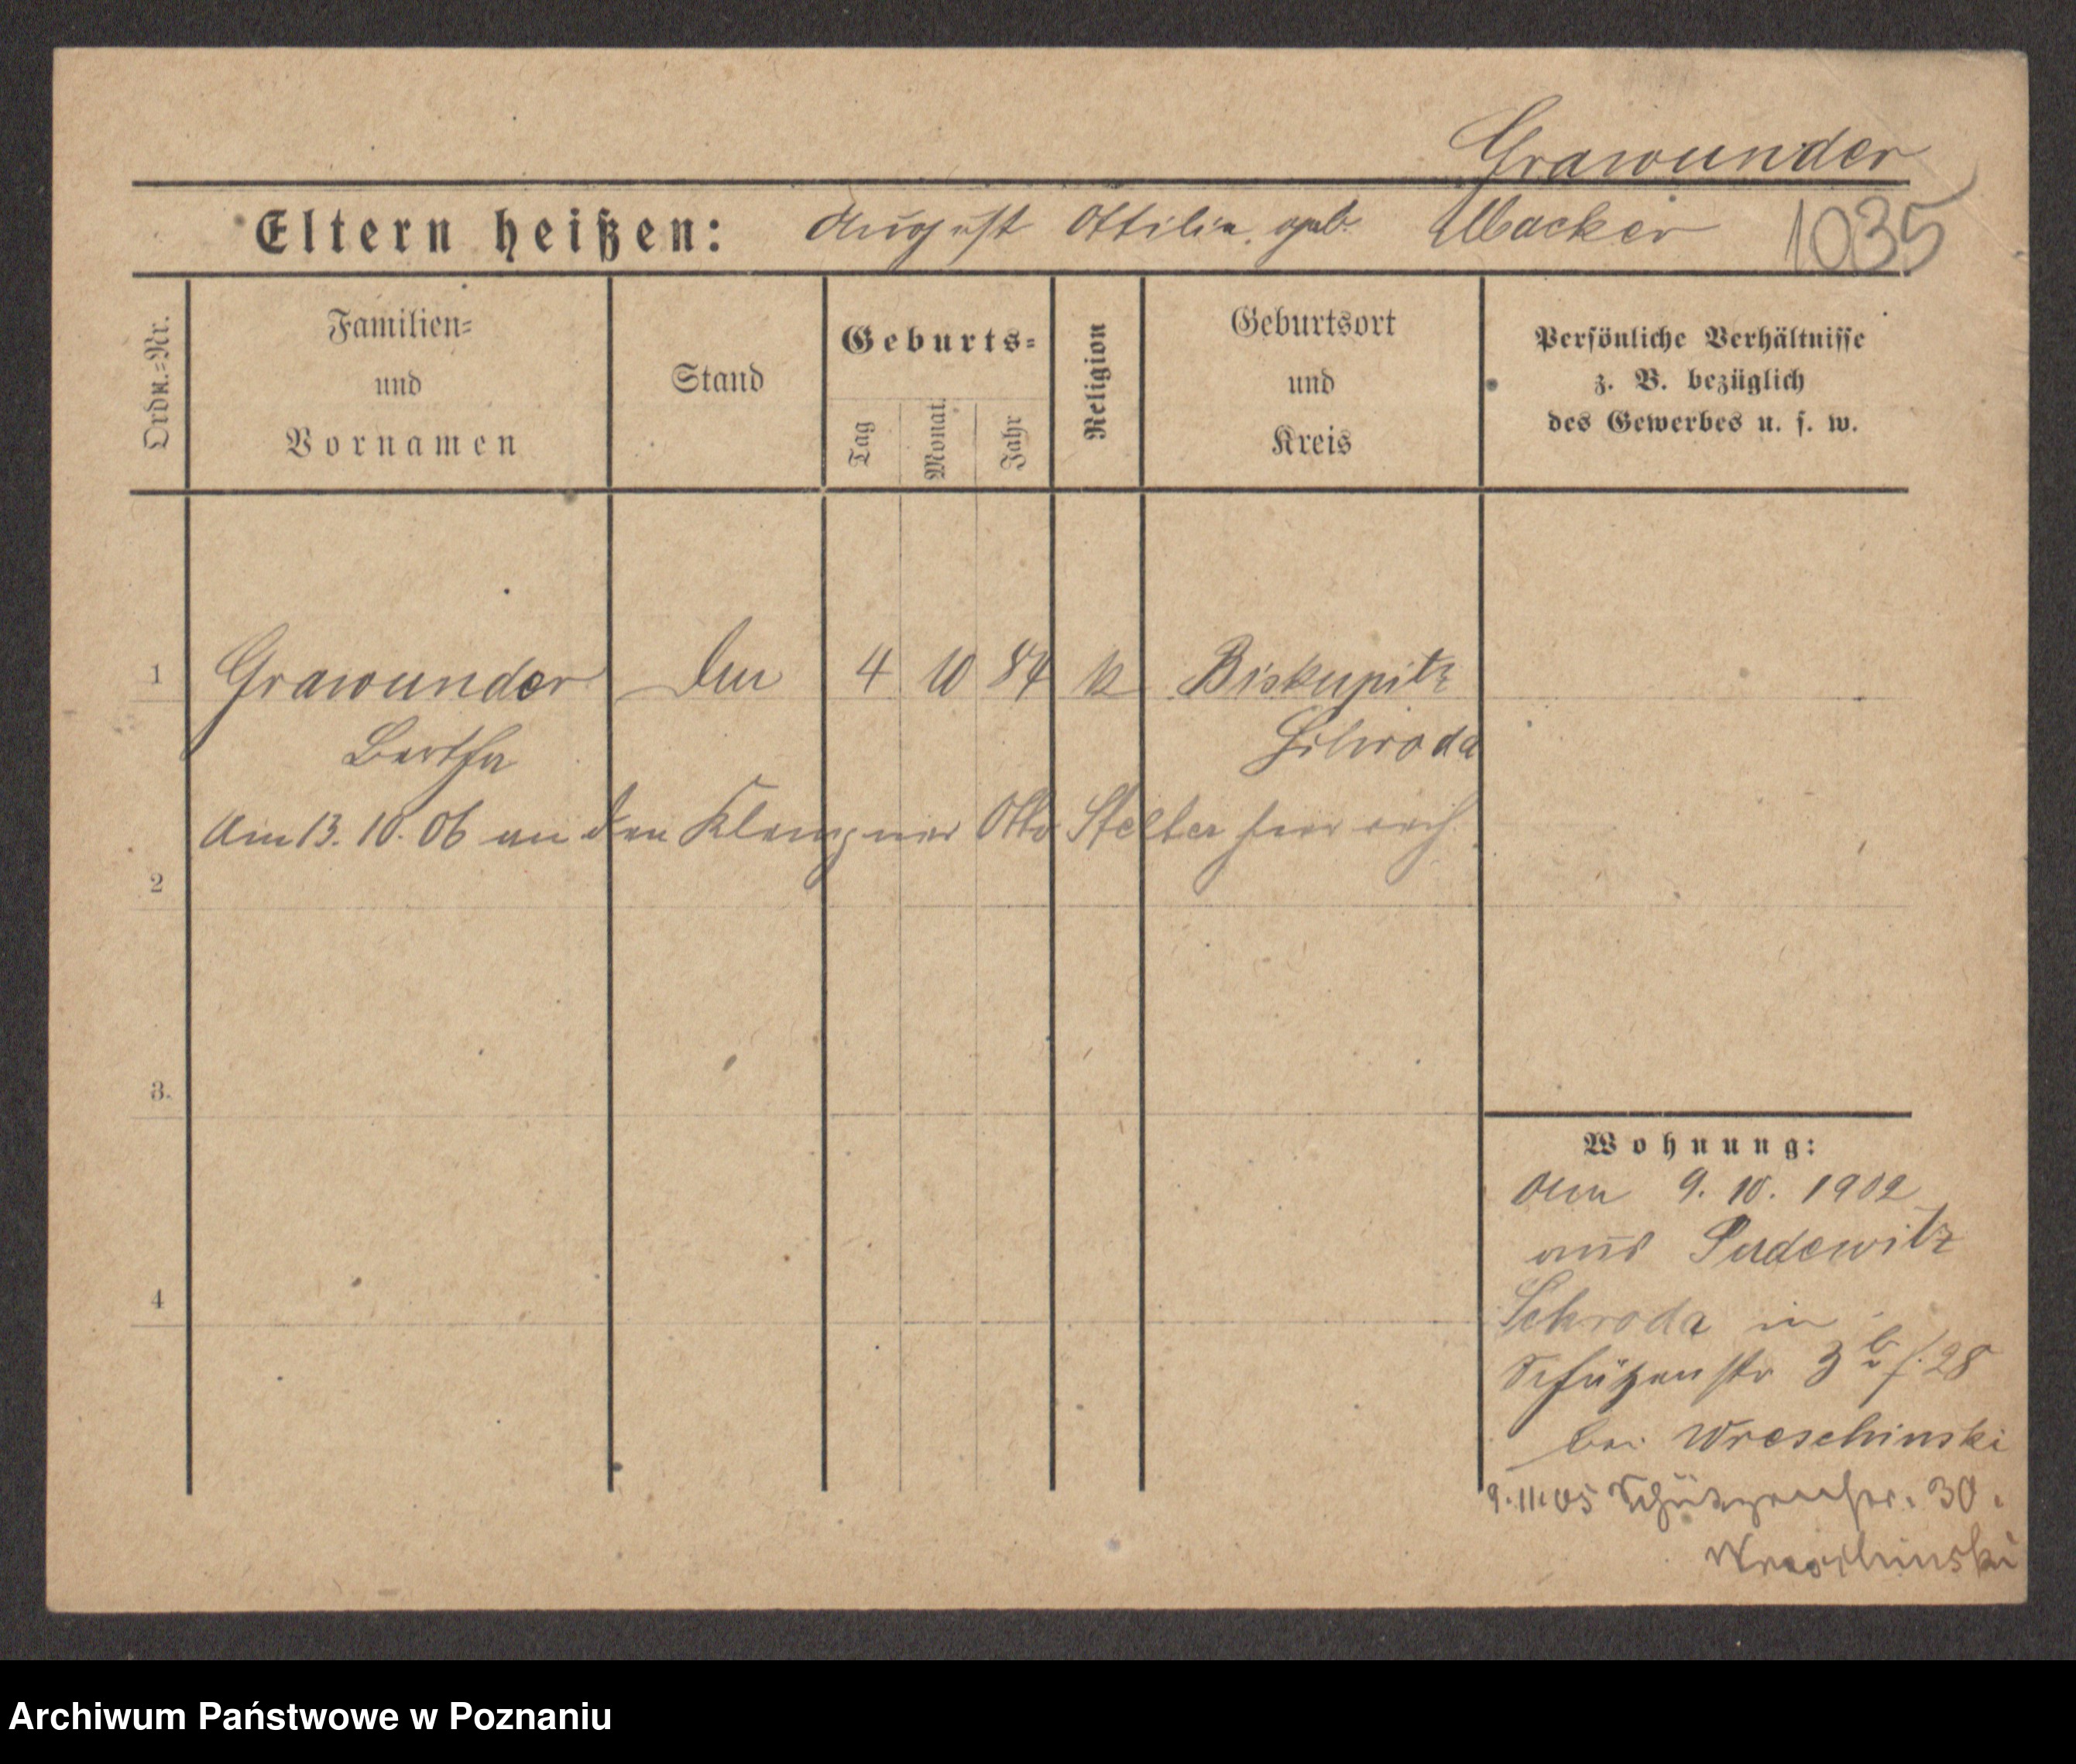 Grawunder
Eltern heißen: August Ottilie geb. Macker 1035
Ordn.-Nr.
Familien-
und
Vornamen
Stand
Geburts-
Tag
Monat
Jahr
Religion
Geburtsort
und
Kreis
Persönliche Verhältnisse
z. B. bezüglich
des Gewerbes u. s. w.
1 Grawunder 4 10 84 k Biskupitz
Bertha Schroda
Am 13. 10. 06 an den Klempner Otto Stelter hier
2
3.
4
Wohnung:
Am 9. 10. 1902
aus Pudewitz
Schroda in
Schützenstr 3 b 28
bei Wreschinski
9.11.05 Schützenstr. 30.
Wreschinski
Archiwum Państwowe w Poznaniu